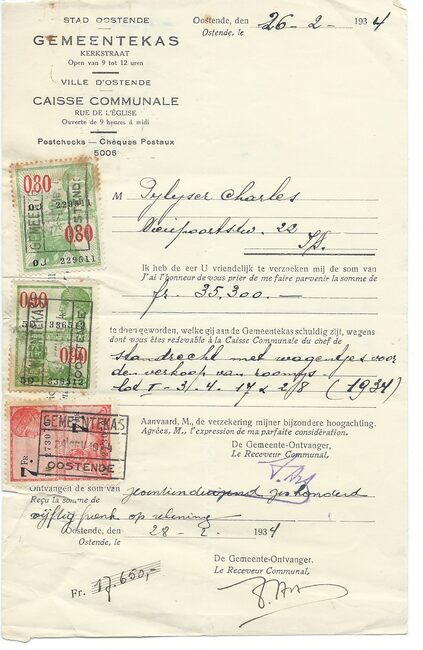 STAD OOSTENDE
GEMEENTEKAS
KERKSTRAAT
Open van 9 tot 12 uren
VILLE D'OSTENDE
CAISSE COMMUNALE
RUE DE L'ÉGLISE
Ouverte de 9 heures à midi
Postchecks — Chèques Postaux
5006
Oostende, den 26-2- 1934
Ostende, le
M Pylyser Charles
22
Ik heb de eer U vriendelijk te verzoeken mij de som van
J'ai l'honneur de vous prier de me faire parvenir la somme de
fr. 35.300.—
te doen geworden, welke gij aan de Gemeentekas schuldig zijt, wegens
dont vous êtes redevable à la Caisse Communale du chef de
standrecht met wagentjes voor
den verkoop van roomijs
lot 1-3/4 17 & 2/8 (1934)
Aanvaard, M., de verzekering mijner bijzondere hoogachting.
Agréez, M., l'expression de ma parfaite considération.
De Gemeente-Ontvanger.
Le Receveur Communal,
Ontvangen de som van zeventienduizend zeshonderd
Reçu la somme de
vijftig frank op rekening
Oostende, den 28-2- 1934
Ostende, le
De Gemeente-Ontvanger.
Le Receveur Communal,
Fr. 17.650,-
0.80
OJ 229511
0.80
OJ 229511
0.90
336512
0.90
336512
7 FR
7
GEMEENTEKAS
OOSTENDE